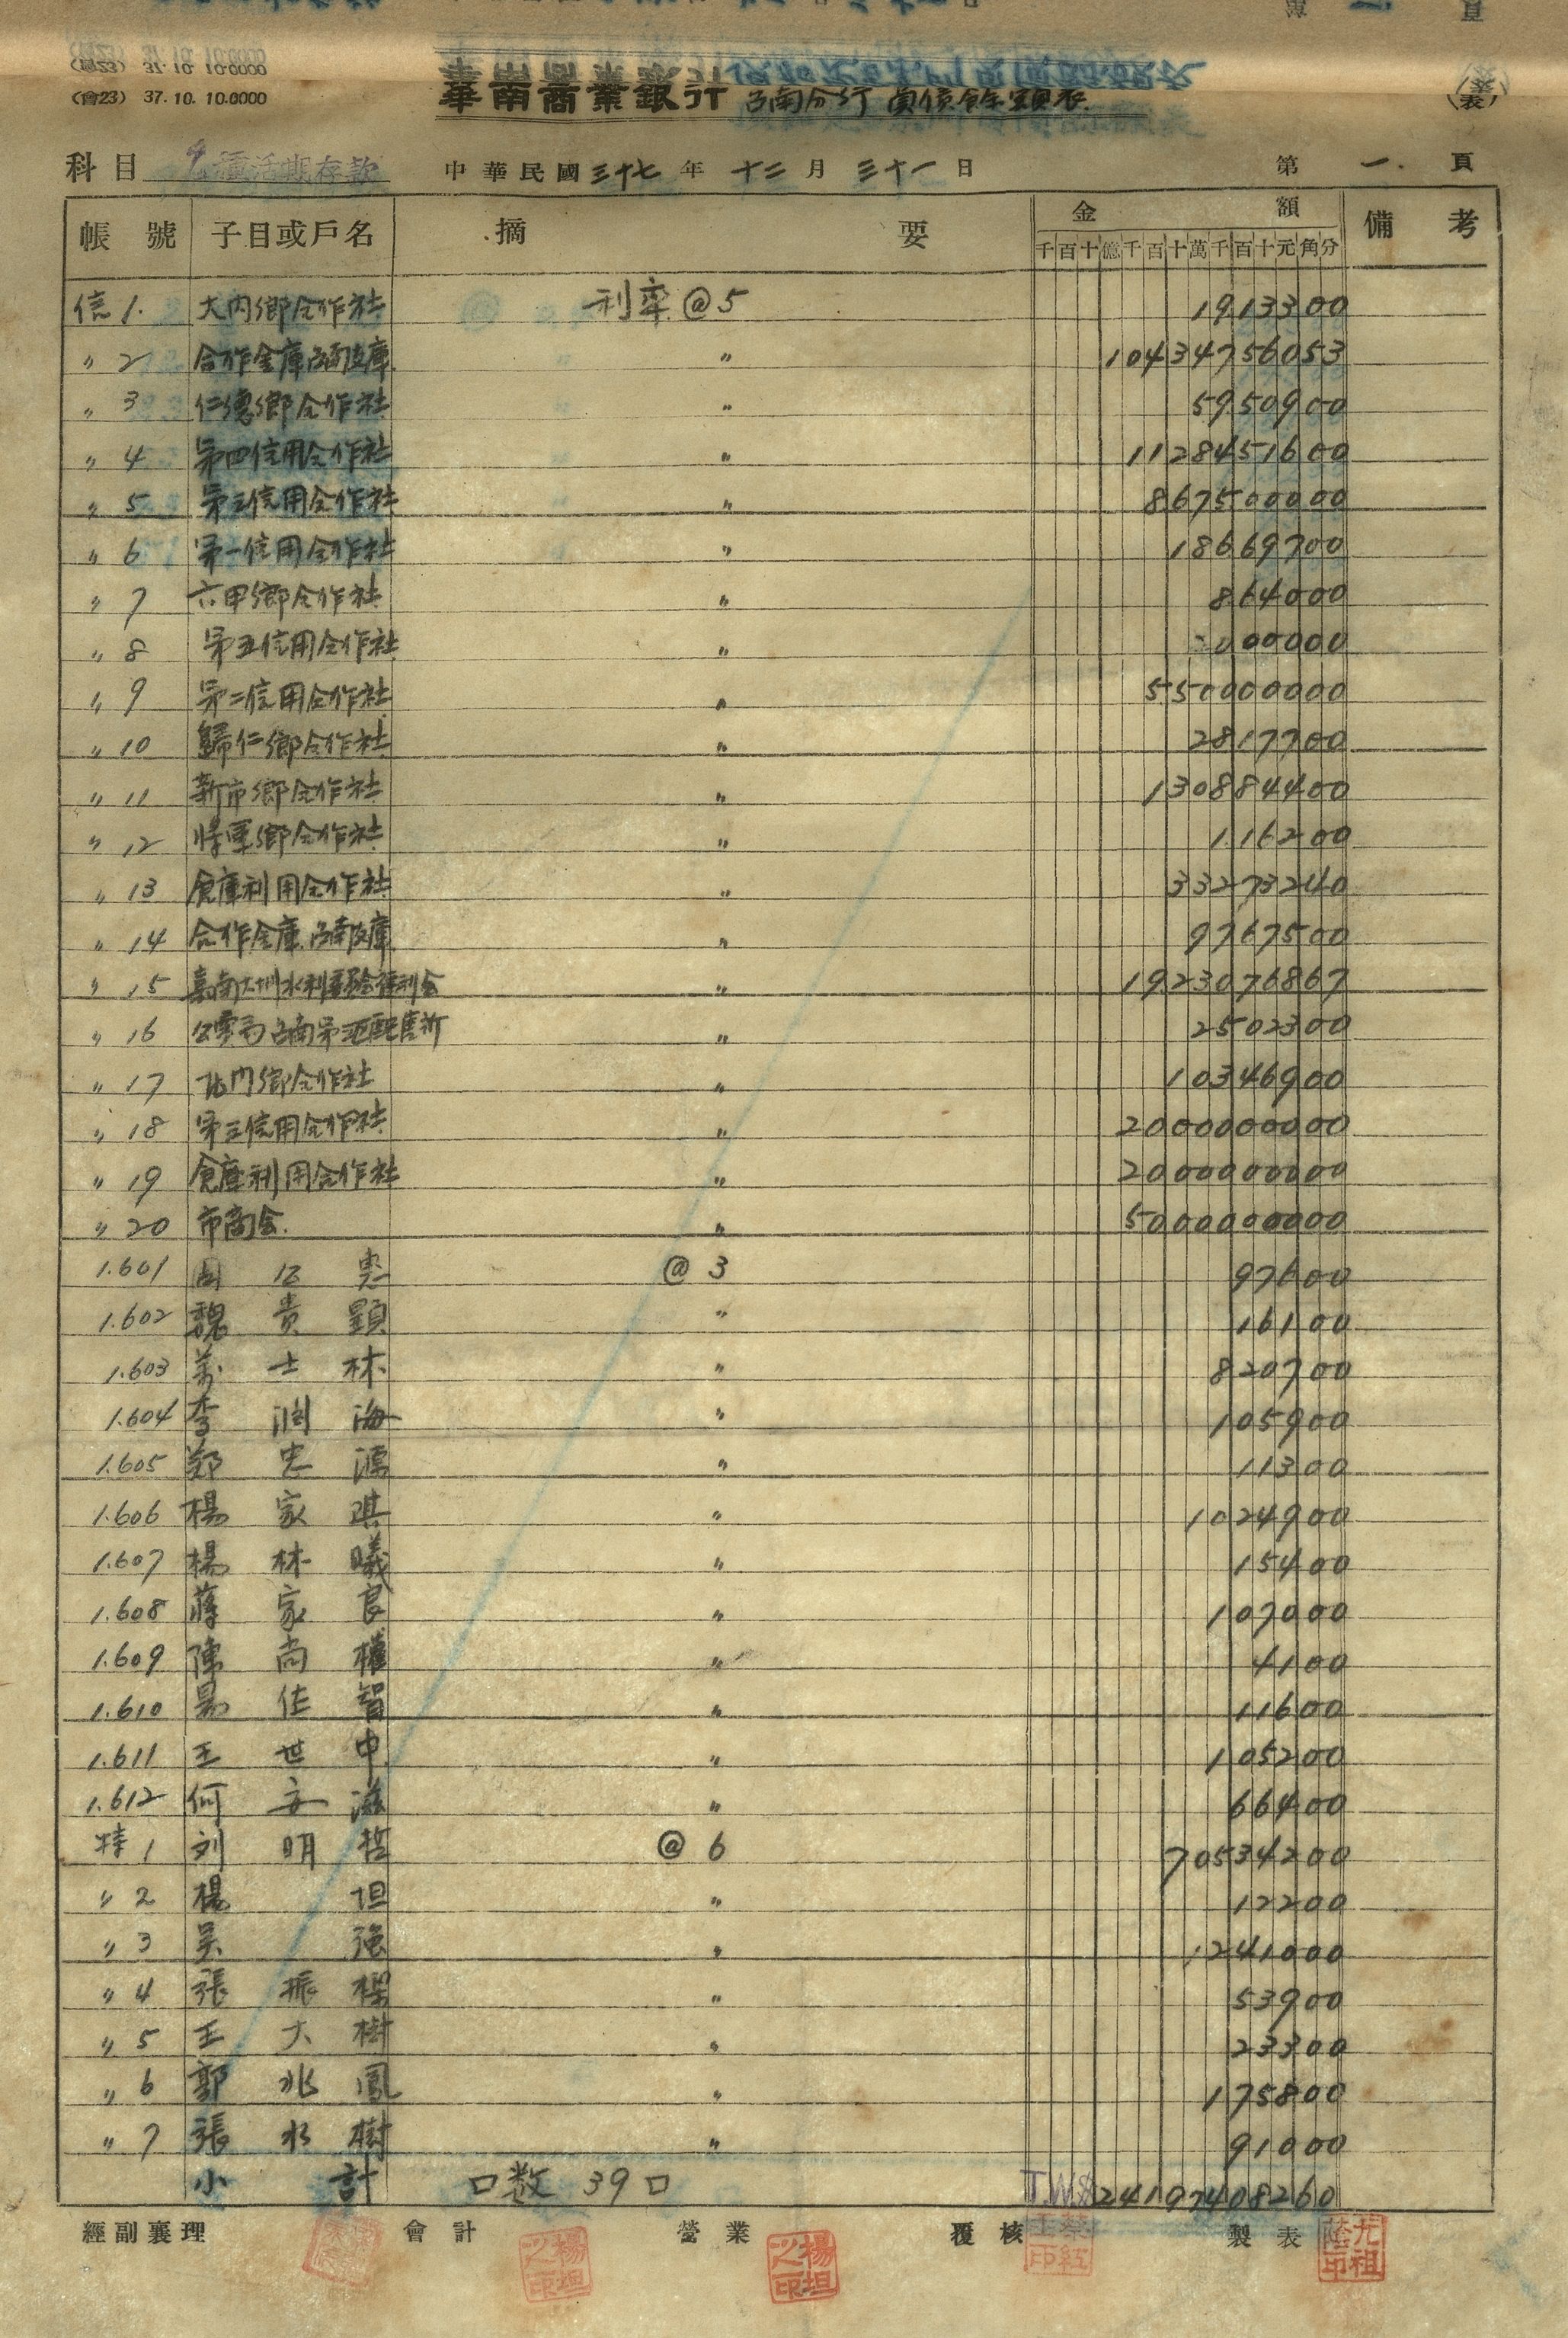 (會23) 37.10.10.0000
華南商業銀行 台南分行 負債餘額表 (表)
科目 甲種活期存款 中華民國三十七年十二月三十一日 第一頁
帳號 子目或戶名 摘要 金額 備考
千百十億千百十萬千百十元角分
信1. 大內鄉合作社 利率@5 1913300
〃2 合作金庫台南支庫 〃 10434756053
〃3 仁德鄉合作社 〃 5950900
〃4 第四信用合作社 〃 1128451600
〃5 第三信用合作社 〃 867500000
〃6 第一信用合作社 〃 18669700
〃7 六甲鄉合作社 〃 864000
〃8 第五信用合作社 〃 000000
〃9 第二信用合作社 〃 550000000
〃10 歸仁鄉合作社 〃 2817700
〃11 新市鄉合作社 〃 130884400
〃12 將軍鄉合作社 〃 116200
〃13 倉庫利用合作社 〃 33273240
〃14 合作金庫台南支庫 〃 9767500
〃15 嘉南大圳水利委員會福利会 〃 1923076867
〃16 公賣局台南第 配售所 〃 2502300
〃17 北門鄉合作社 〃 10346900
〃18 第三信用合作社 〃 2000000000
〃19 倉庫利用合作社 〃 2000000000
〃20 市商会. 〃 5000000000
1.601 周 @3 97600
1.602 魏貴顕 〃 16100
1.603 士林 〃 820700
1.604 李渕海 〃 105900
1.605 鄭忠 〃 11300
1.606 楊家琪 〃 1024900
1.607 楊林曦 〃 15400
1.608 蔣家良 〃 107000
1.609 陳尚權 〃 4100
1.610 佐智 〃 11600
1.611 王世中 〃 105200
1.612 何文滋 〃 66400
特1 刘明哲 @6 70534200
〃2 楊坦 〃 12200
〃3 吳強 〃 1241000
〃4 張振樑 〃 53900
〃5 王大樹 〃 23300
〃6 郭兆鳳 〃 175800
〃7 張水樹 〃 91000
小計 口数39口 T.W.$24197408260
經副襄理 會計 營業 覆核 製表
楊坦之印 楊坦之印 尤祖蔭印